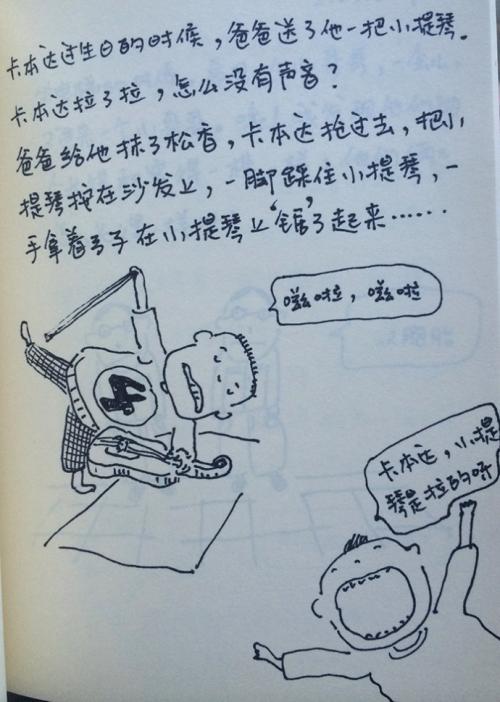 卡本达过生日的时候，爸爸送了他一把小提琴。
卡本达拉了拉，怎么没有声音？
爸爸给他抹了松香，卡本达抢过去，把小
提琴按在沙发上，一脚踩住小提琴，一
手拿着弓子在小提琴上‘锯’了起来……
嗞啦，嗞啦
卡本达，小提
琴是拉的呀
4